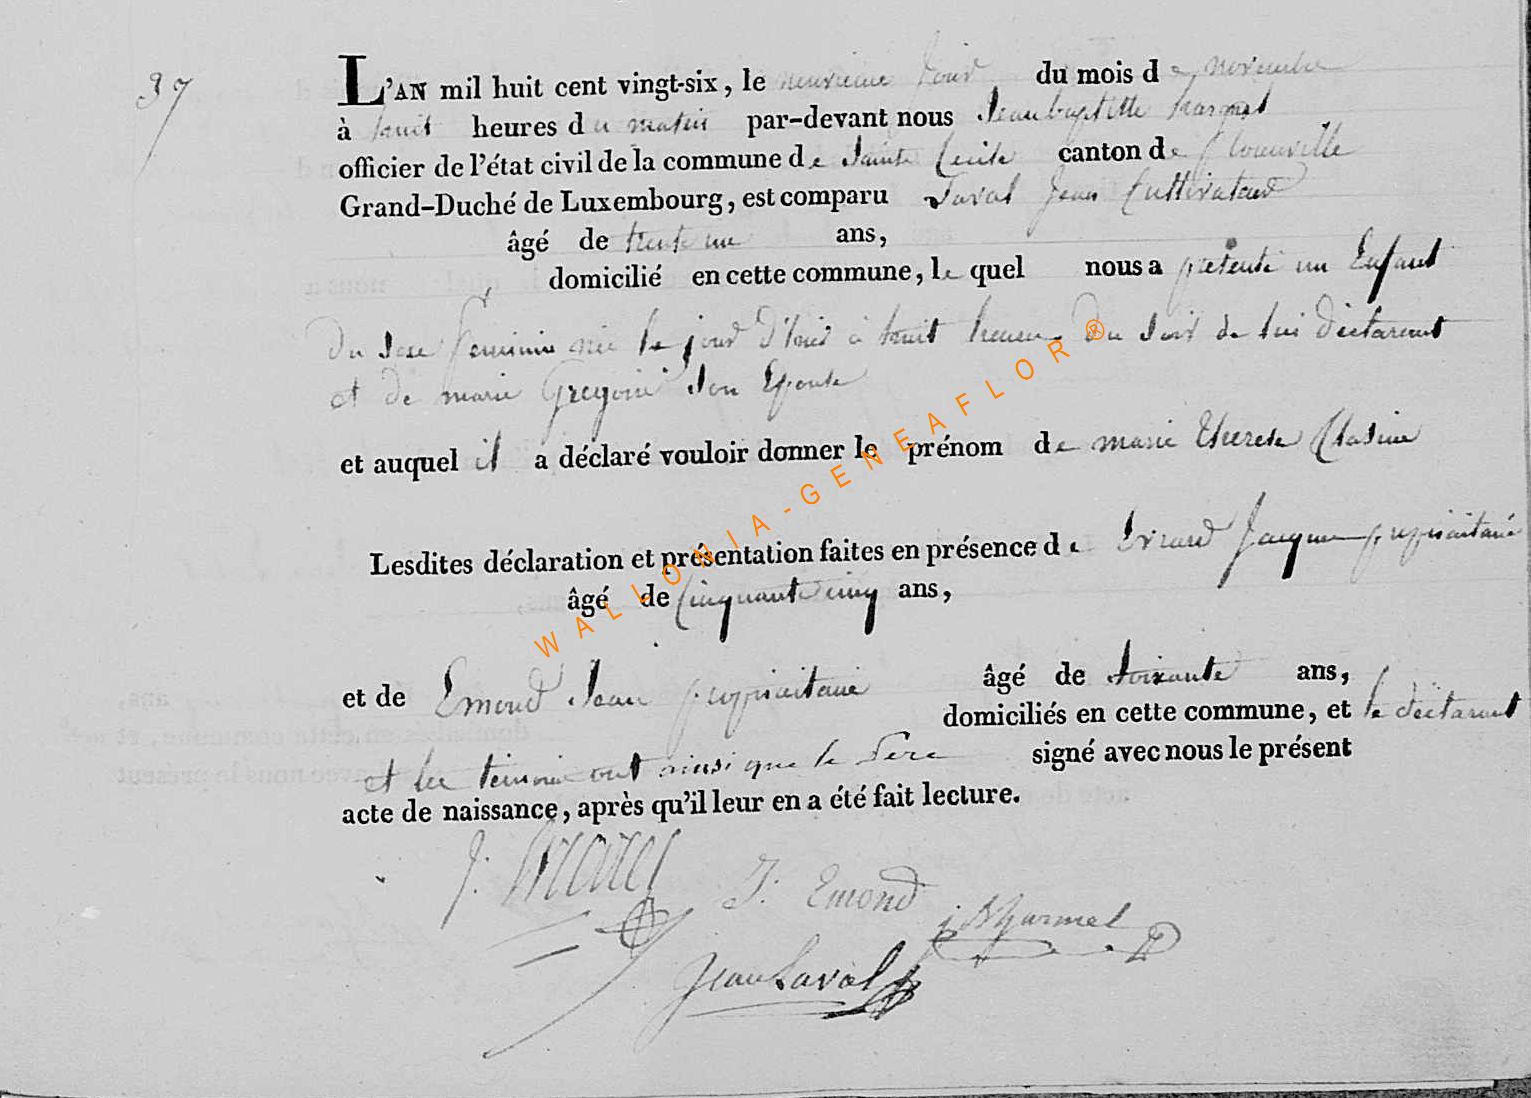 37
L'AN mil huit cent vingt-six, le neuvieme jour du mois de novembre
à huit heures du matin par-devant nous Jean baptiste harmel
officier de l'état civil de la commune de Sainte Cecile canton de florenville
Grand-Duché de Luxembourg, est comparu Laval Jean Cultivateur
âgé de trente un ans,
domicilié en cette commune, le quel nous a présenté un Enfant
du sexe feminin née le jour d'hier à huit heures du soir de lui déclarant
et de marie Gregoire son Epouse
et auquel il a déclaré vouloir donner le prénom de marie therese
Lesdites déclaration et présentation faites en présence de Evrard Jacques propriaitaire
âgé de Cinquante cinq ans,
et de Emond Jean propriaitaire âgé de soixante ans,
domiciliés en cette commune, et le déclarant
et les temoins ont ainsi que le Pere signé avec nous le présent
acte de naissance, après qu'il leur en a été fait lecture.
J. Evrard
J. Emond
jB harmel
Jean Laval
WALLONIA-GENEAFLOR®